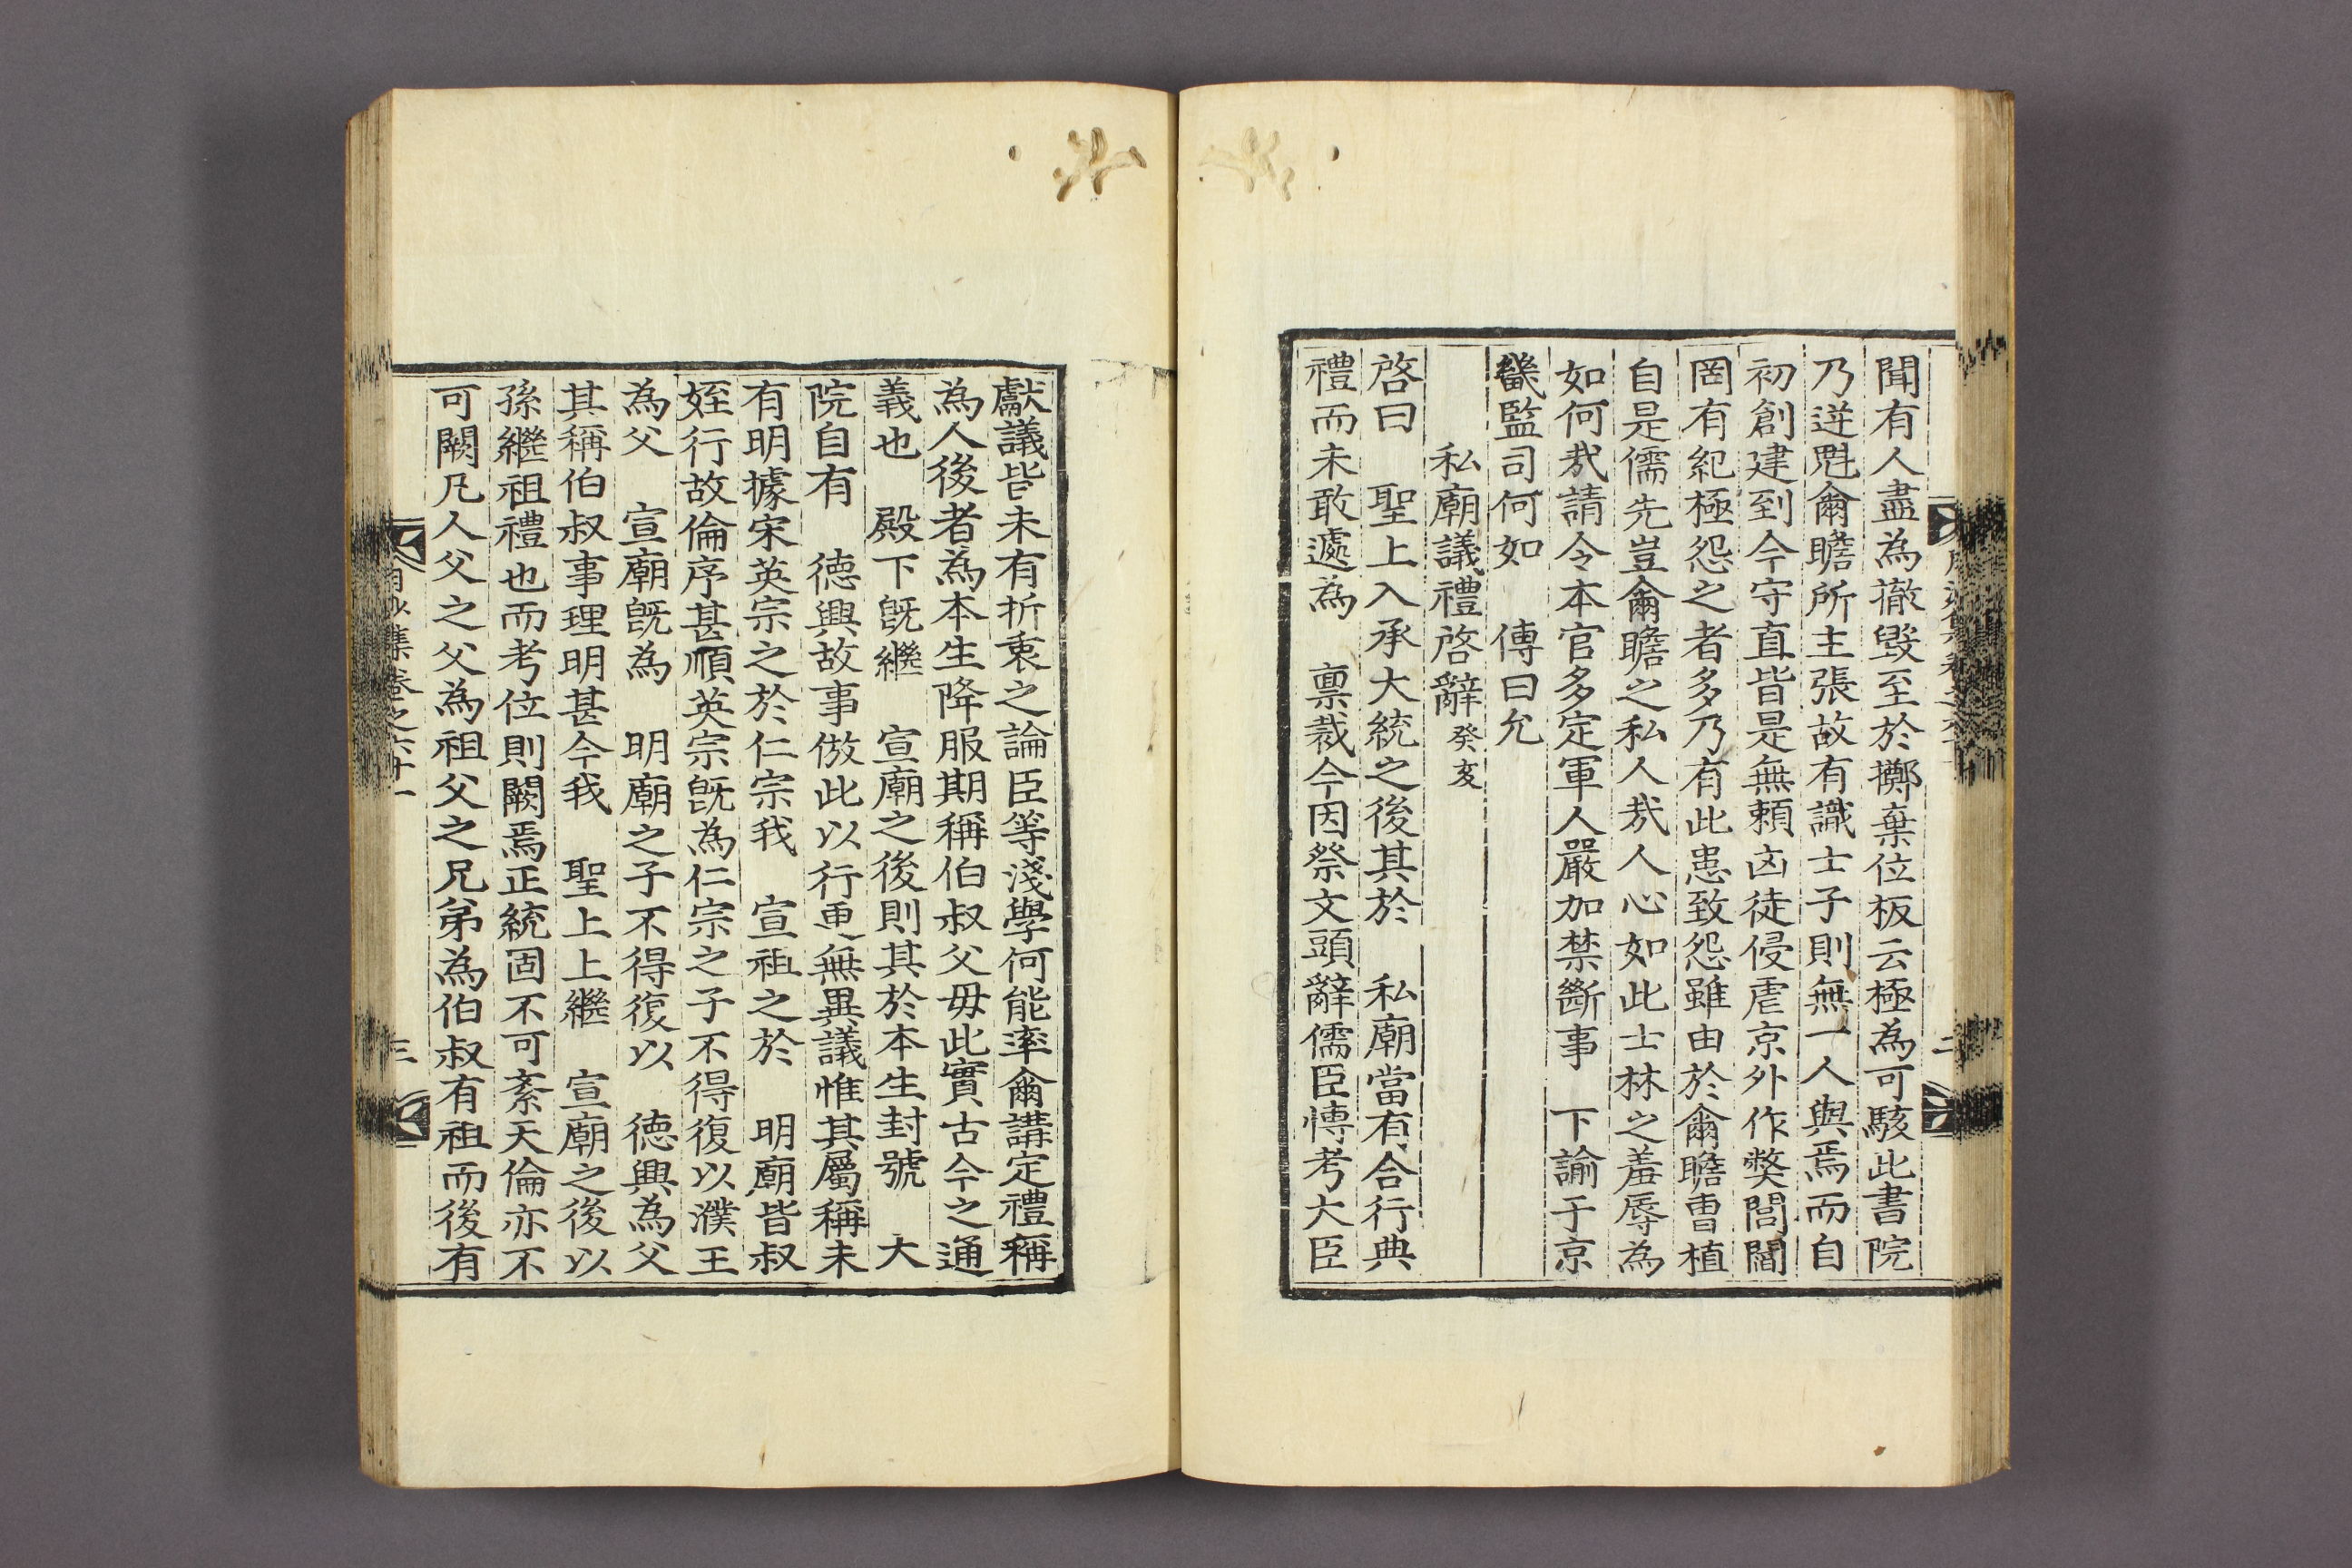 聞有人盡為撤毀至於擲棄位板云極為可駭此書院
乃迸魁爾瞻所主張故有識士子則無一人與焉而自
初創建到今守直皆是無頼凶徒侵虐京外作獘閭閻
罔有紀極怨之者多乃有此患致怨雖由於爾瞻曺植
自是儒先豈爾瞻之私人㢤人心如此士林之羞辱為
如何㢤請令本官多定軍人嚴加禁斷事　下諭于京
畿監司何如　傳曰允
私廟議禮啓辭癸亥
啓曰　聖上入承大統之後其於　私廟當有合行典
禮而未敢遽為　禀裁今因祭文頭辭儒臣愽考大臣
獻議皆未有折衷之論臣等淺學何能率爾講定禮稱
為人後者為本生降服期稱伯叔父母此實古今之通
義也　殿下旣繼　宣廟之後則其於本生封號　大
院自有　德興故事倣此以行更無異議惟其屬稱未
有明據宋英宗之於仁宗我　宣祖之於　明廟皆叔
姪行故倫序甚順英宗旣為仁宗之子不得復以濮王
為父　宣廟旣為　明廟之子不得復以　德興為父
其稱伯叔事理明甚今我　聖上上繼　宣廟之後以
孫繼祖禮也而考位則闕焉正統固不可紊天倫亦不
可闕凡人父之父為祖父之兄弟為伯叔有祖而後有
集卷之六十一
三